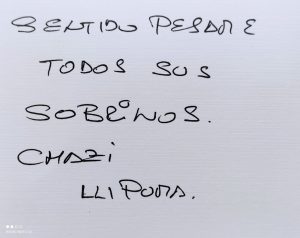 SENTIDO PESAME
TODOS SUS
SOBRINOS.
CHAZI
LLIPUMA.